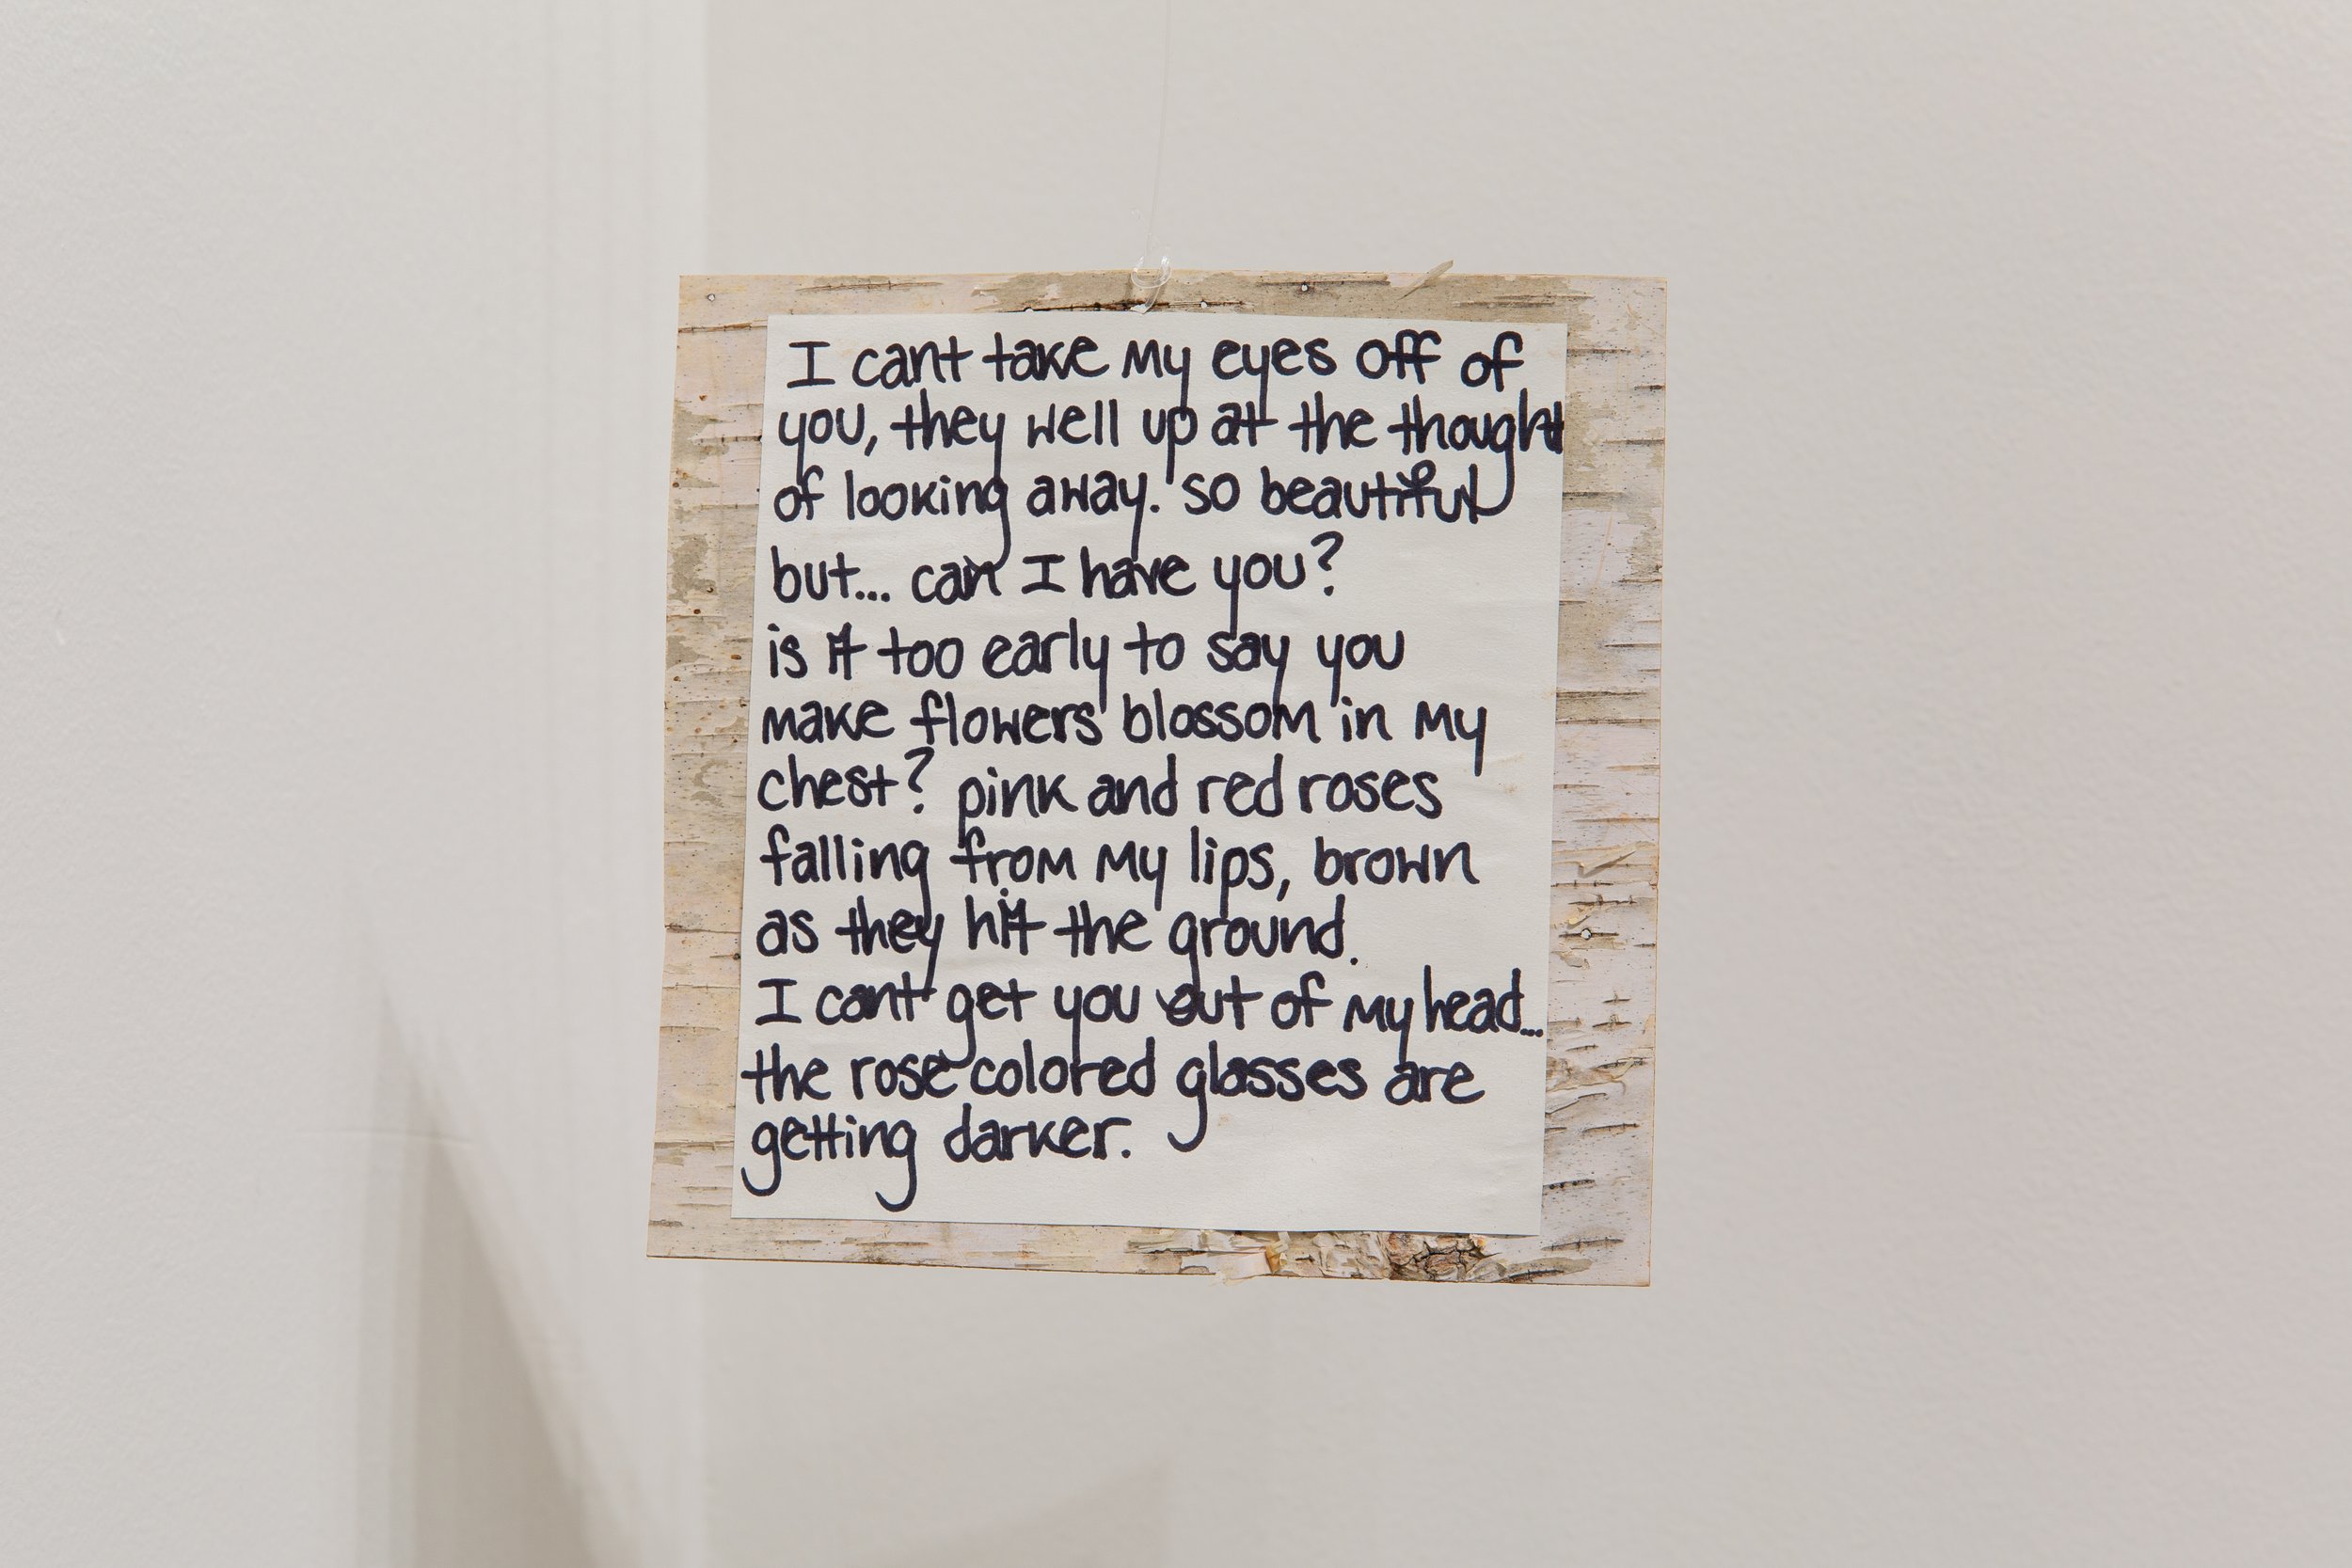 I cant take my eyes off of
you, they well up at the thought
of looking away. so beautiful
but... can I have you?
is it too early to say you
make flowers blossom in my
chest? pink and red roses
falling from my lips, brown
as they hit the ground.
I cant get you out of my head...
the rose colored glasses are
getting darker.